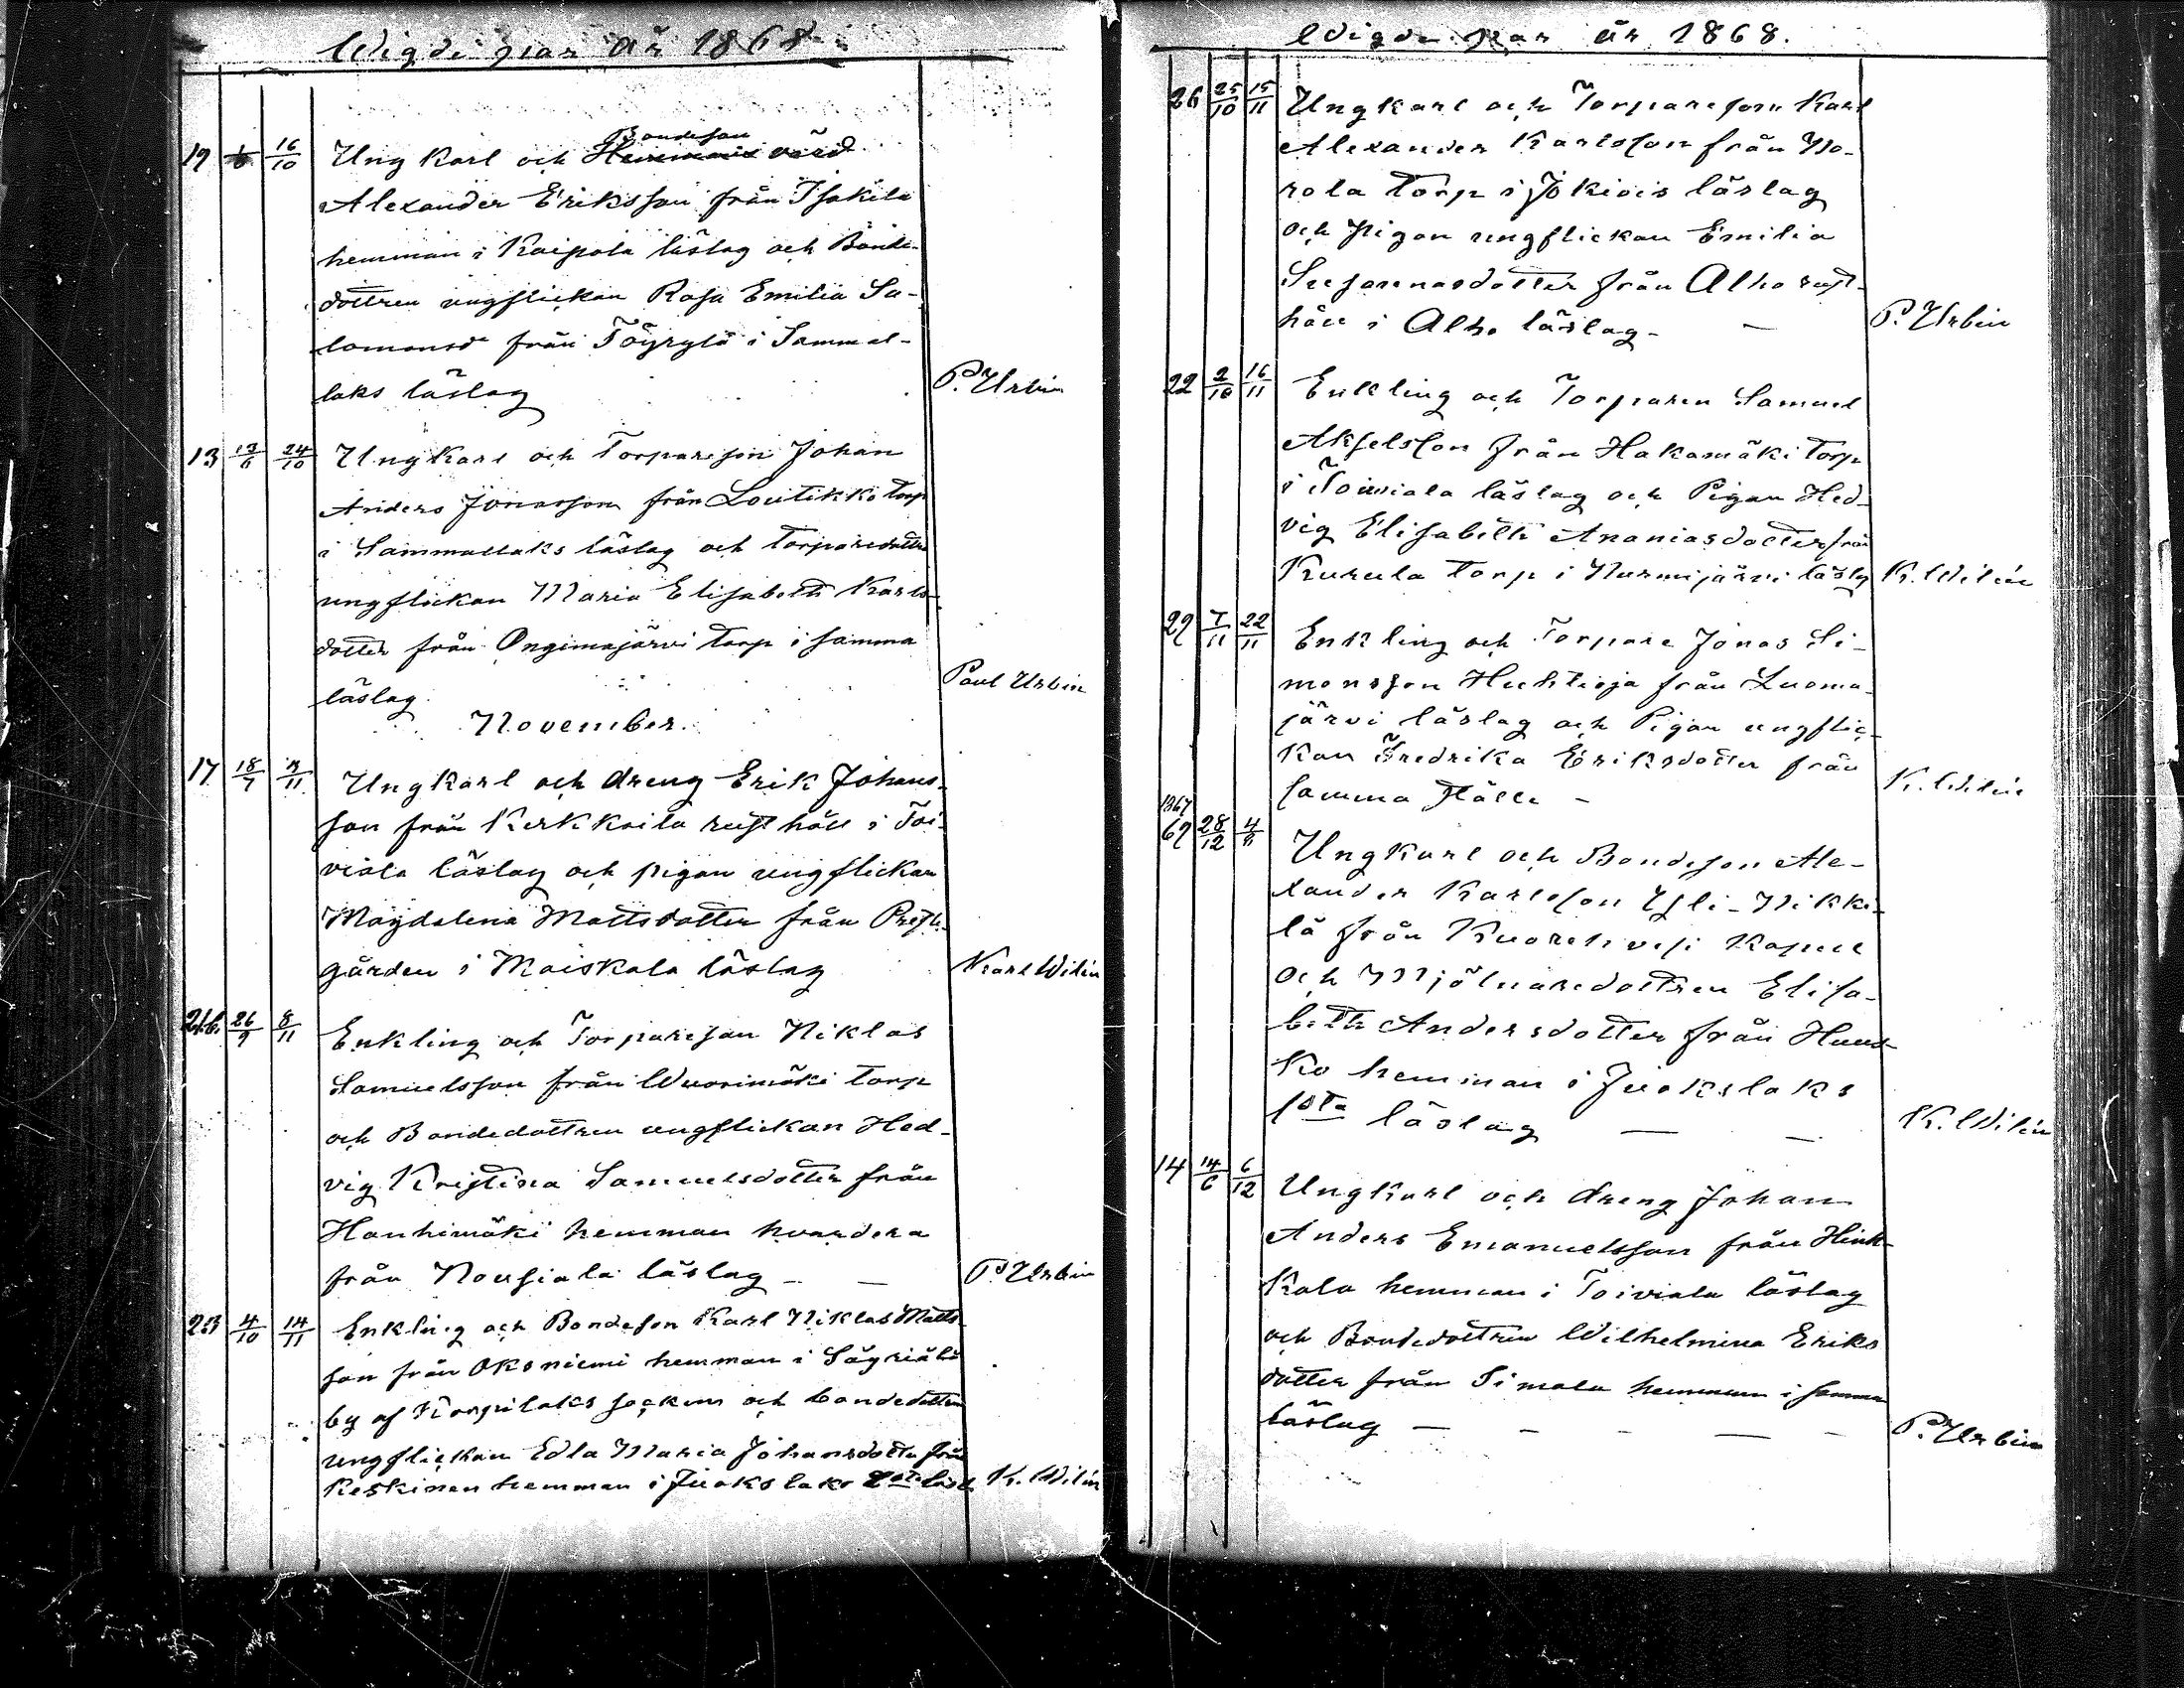 Wigde par år 1868
19 16/10 Ungkarl och Bondeson
Alexander Eriksson från Isakila
hemman i Kaipola läslag och Bonde-
dottren ungflickan Rosa Emilia Sa-
lomonsdr från Töyrylä i Sammal-
laks läslag P. Urbin
13 13/6 24/10 Ungkarl och Torpareson Johan
Anders Jonasson från Loutikko torp
i Sammallaks läslag och torparedottr
ungflickan Maria Elisabeth Karls-
dotter från Ongimajärvi torp i samma
läslag Paul Urbin
November.
17 18/7 /11 Ungkarl och dreng Erik Johans-
son från Kerkkoila rusthåll i Toi-
viala läslag och pigan ungflickan
Magdalena Mattsdotter från Prest-
gården i Maiskala läslag Karl Wilén
26/9 8/11 Enkling och Torpareson Niklas
Samuelsson från Wuorimäki torp
och Bondedottren ungflickan Hed-
vig Kristina Samuelsdotter från
Hanhimäki hemman hvardera
från Nousiala läslag – – P. Urbin
23 4/10 14/11 Enkling och Bondeson Karl Niklas Matts-
son från Oksniemi hemman i
by af Korpilaks socken och bondedottren
ungflickan Edla Maria Johansdotter från
Keskinen hemman i Juokslaks 2dra läsl. K. Wilén
Wigde par år 1868.
26 25/10 15/11 Ungkarl och Torpareson Karl
Alexander Karlsson från No-
rola torp i Jokiois läslag
och pigan ungflickan Emilia
Susannasdotter från Alho rust-
håll i Alho läslag – – P. Urbin
22 2/10 16/11 Enkling och Torparen Samuel
Akselsson från Hakamäki torp
i Toiviala läslag och Pigan Hed-
vig Elisabeth Ananiasdotter från
Kurula torp i Nurmijärvi läslag K. Wilén
29 7/11 22/11 Enkling och Torpare Jonas Si-
monsson Huhtioja från Luoma-
järvi läslag och Pigan ungflic-
kan Fredrika Eriksdotter från
samma ställe – K. Wilén
1867
69 28/12 4/11 Ungkarl och Bondeson Ale-
xander Karlsson Yli-Nikki-
lä från Kuorehvesi Kapell
och Mjölnaredottren Elisa-
beth Andersdotter från
hemman i Juokslaks
1sta läslag – – K. Wilén
14 14/6 6/12 Ungkarl och dreng Johan
Anders Emanuelsson från Hink-
kala hemman i Toiviala läslag
och Bondedottren Wilhelmina Eriks
dotter från Simola hemman i samma
läslag – – – – – P. Urbin